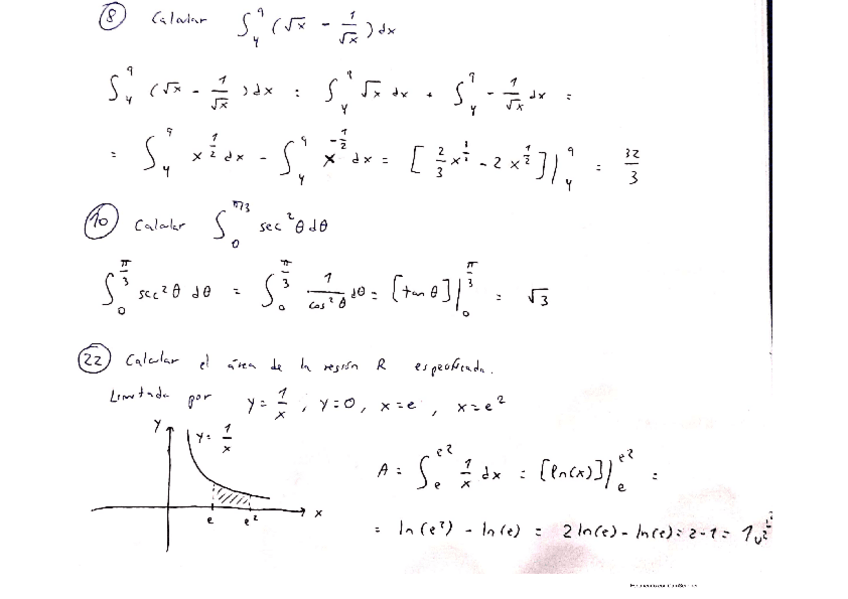 8 Calcular ∫₄⁹ (√x - 1/√x) dx
∫₄⁹ (√x - 1/√x) dx = ∫₄⁹ √x dx + ∫₄⁹ - 1/√x dx =
= ∫₄⁹ x^(1/2) dx - ∫₄⁹ x^(-1/2) dx = [2/3 x^(3/2) - 2 x^(1/2)]|₄⁹ = 32/3
10 Calcular ∫₀^(π/3) sec²θ dθ
∫₀^(π/3) sec²θ dθ = ∫₀^(π/3) 1/cos²θ dθ = [tan θ]|₀^(π/3) = √3
22 Calcular el área de la región R especificada.
Limitada por y = 1/x, y=0, x=e, x=e²
y
y = 1/x
x
e e²
A = ∫ₑ^(e²) 1/x dx = [ln(x)]|ₑ^(e²) =
= ln(e²) - ln(e) = 2 ln(e) - ln(e) = 2-1 = 1 u²